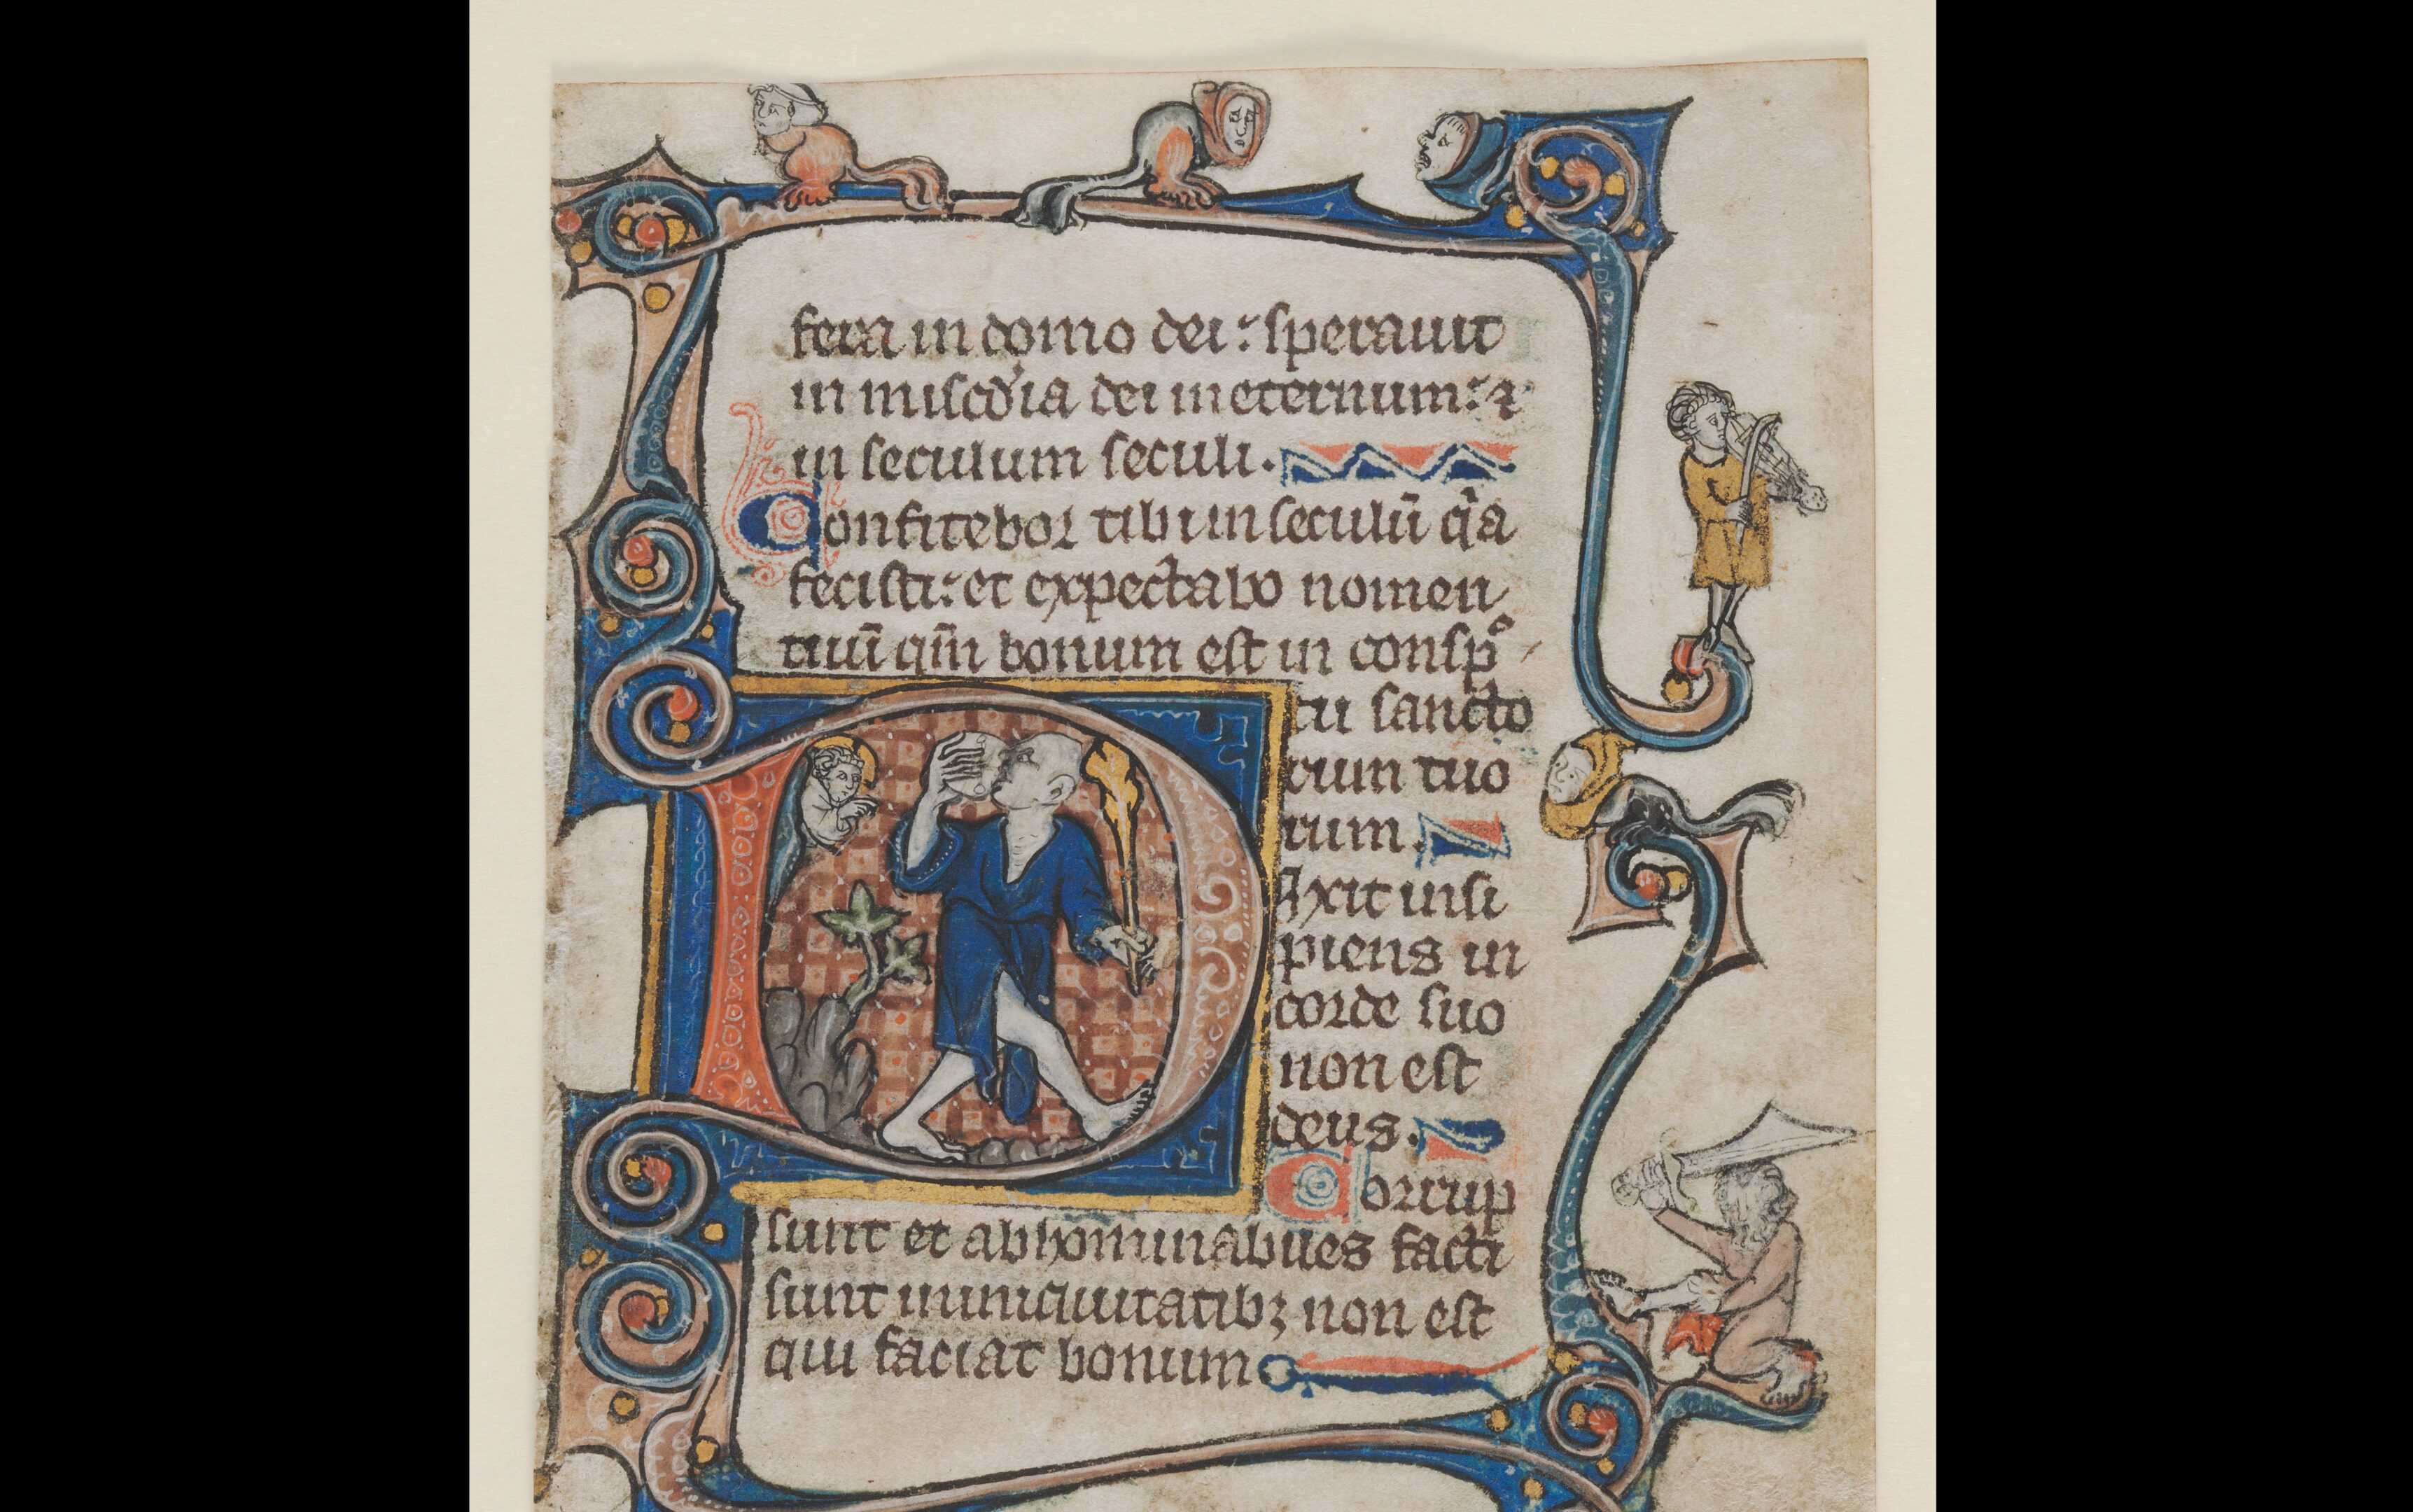 fera in domo dei: speravit
in misc̄dia dei in eternum: ⁊
in seculum seculi.
Confitebor tibi in seculū q̄a
fecisti: et expectabo nomen
tuū qm̄ bonum est in consp̄
tu sancto
rum tuo
rum.
Dixit insi
piens in
corde suo
non est
deus.
Corrup
sunt et abhominabiles facti
sunt in iniquitatibꝫ non est
qui faciat bonum